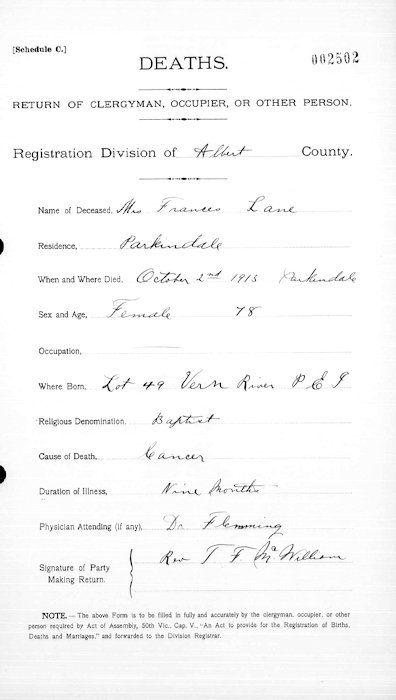 [Schedule C.]
002502
DEATHS.
RETURN OF CLERGYMAN, OCCUPIER, OR OTHER PERSON.
Registration Division of Albert County.
Name of Deceased, Mrs Frances Lane
Residence, Parkindale
When and Where Died, October 2nd 1913 Parkindale
Sex and Age, Female 78
Occupation,
Where Born, Lot 49 Vern River P E I
Religious Denomination, Baptist
Cause of Death, Cancer
Duration of Illness, Nine Months
Physician Attending (if any), Dr. Flemming
Signature of Party Making Return. Rev T F McWilliam
NOTE. — The above Form is to be filled in fully and accurately by the clergyman, occupier, or other
person required by Act of Assembly, 50th Vic., Cap. V., "An Act to provide for the Registration of Births,
Deaths and Marriages," and forwarded to the Division Registrar.